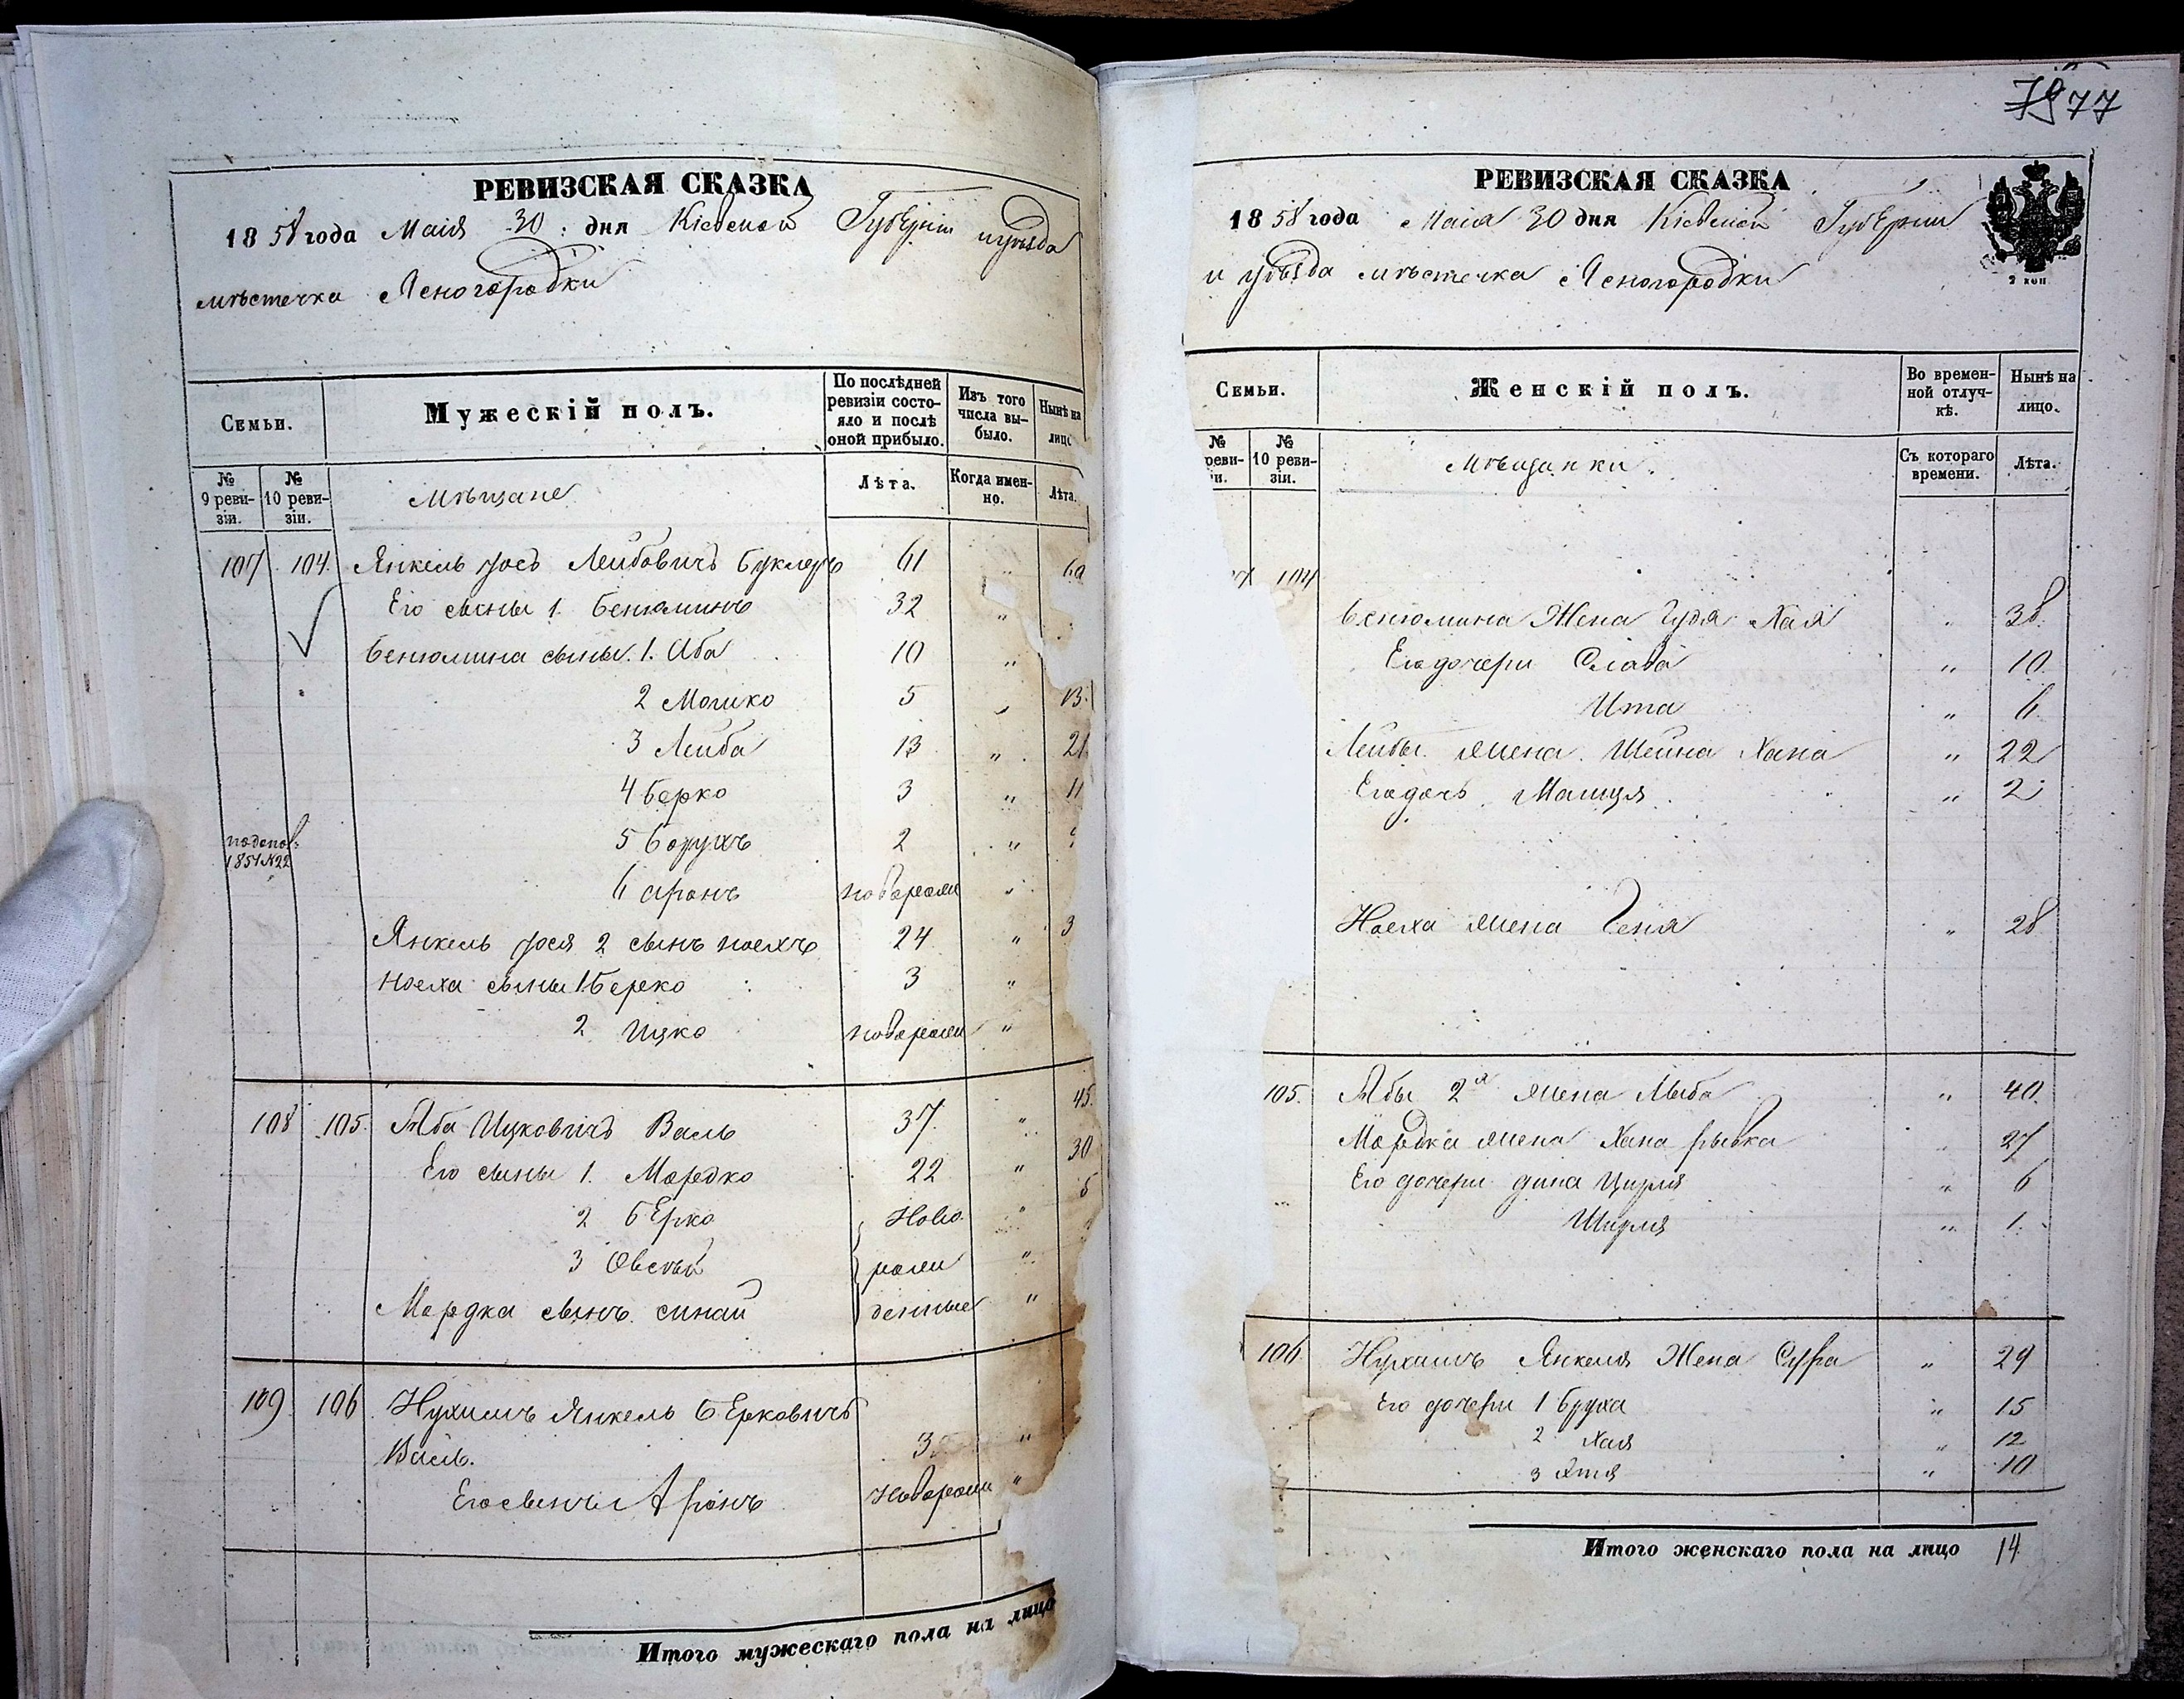 77
РЕВИЗСКАЯ СКАЗКА
1858 года Маія 30 дня Кіевской Губерніи и уѣзда
мѣстечка Ясногородки
Семьи.
Мужескій полъ.
По послѣдней ревизіи состояло и послѣ оной прибыло.
Изъ того числа выбыло.
Нынѣ на лицо
№ 9 ревизіи.
№ 10 ревизіи.
Мѣщане
Лѣта.
Когда именно.
Лѣта.
107 104 Янкель Іось Лейбовичъ 61 "
Его сыны 1. Бенюминъ 32 "
Бенюмина сыны. 1. Аба 10 "
2 Мошко 5 " 13
3 Лейба 13 " 21
4 Берко 3 " 11
1851 №22 5 Борухъ 2 "
6 Аронъ новорожд "
Янкель Іося 2 сынъ Ноехъ 24 " 3
Ноеха сыны 1 Берко 3 "
2 Ицко новорожд "
108 105. Аба Ицковичъ Василь 37. " 45
Его сыны 1. Мордко 22 " 30
2 Берко Ново "
3 Овсей рож "
Мордка сынъ Синай денные "
109 106 Нухимъ Янкель Берковичъ
"
Его сынъ Аронъ Новорожд "
Итого мужескаго пола на лицо
РЕВИЗСКАЯ СКАЗКА
1858 года Маія 30 дня Кіевской Губерніи
и уѣзда мѣстечка Ясногородки
2 коп
Семьи.
Женскій полъ.
Во временной отлучкѣ.
Нынѣ на лицо.
№ реви-
№ 10 ревизіи.
Мѣщанки.
Съ котораго времени.
Лѣта.
104
Бенюмина Жена Гудя Хая " 38
Его дочери Слава " 10
Ита " 6
Лейбы жена Шейна Хана " 22
Его дочь " 2
Ноеха жена Геня " 28
105. Абы 2я жена Лыба " 40
Мордка жена Хана Рывка " 27
Его дочери Дина Цирля " 6
" 1.
106 Нухимъ Янкеля Жена Сура " 29
Его дочери 1 Бруха " 15
2 Хая " 12
3 " 10
Итого женскаго пола на лицо 14